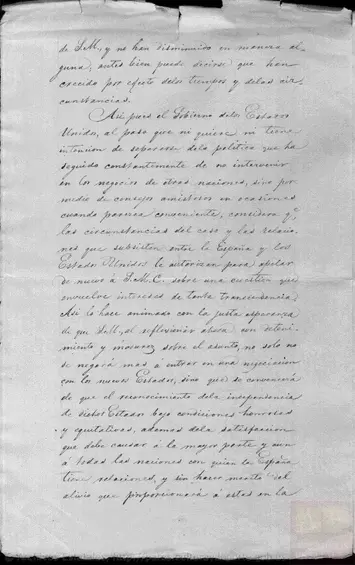 de S.M., y no han disminuido en manera al-
guna, antes bien puede decirse que han
crecido por efecto delos tiempos y delas cir-
cunstancias.
Asi pues el Gobierno delos Estados
Unidos, al paso que ni quiere ni tiene
intencion de separarse dela politica que ha
seguido constantemente de no intervenir
en los negocios de otras naciones, sino por
medio de consejos amistosos en ocasiones
cuando parezca conveniente, considera qe
las circunstancias del caso y las relacio-
nes que subsisten entre la España y los
Estados Unidos le autorizan para apelar
de nuevo á S.M.C. sobre una cuestion que
envuelve intereses de tanta trascendencia.
Asi lo hace animado con la justa esperanza
de que S.M., al reflexionar ahora con deteni-
miento y madurez sobre el asunto, no solo no
se negará mas á entrar en una negociacion
con los nuevos Estados, sino que se convencerá
de que el reconocimiento dela independencia
de dichos Estados bajo condiciones honrosas
y equitativas, ademas dela satisfaccion
que debe causar á la mayor parte y aun
á todas las naciones con quien la España
tiene relaciones, y sin hacer merito del
alivio que proporcionará á estas en la